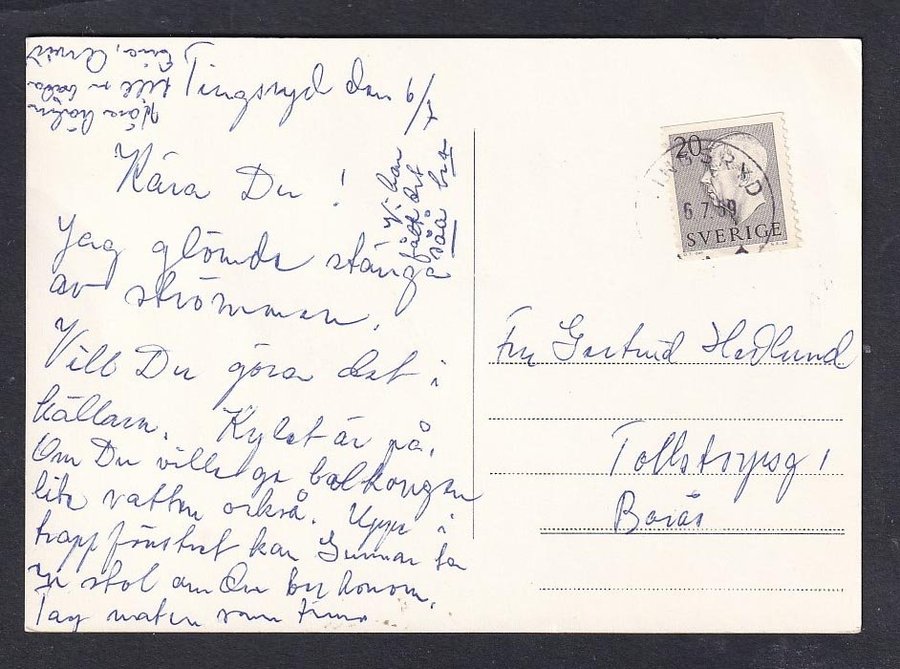 Tingsryd den 6/7
Kära Du!
Jag glömde stänga
av strömmen.
Vill Du göra det i
källarn. Kylet är på.
Om Du ville ge balkongen
lite vatten också. Uppe i
trappfönstret kan Gunnar ta
en stol om Du ber honom.
Tag maten som finns
Vi har
så bra
Kära hälsn
till er båda
Arvid
Fru Gertrud Hedlund
Borås
20
INGSRYD
6.7.59
SVERIGE